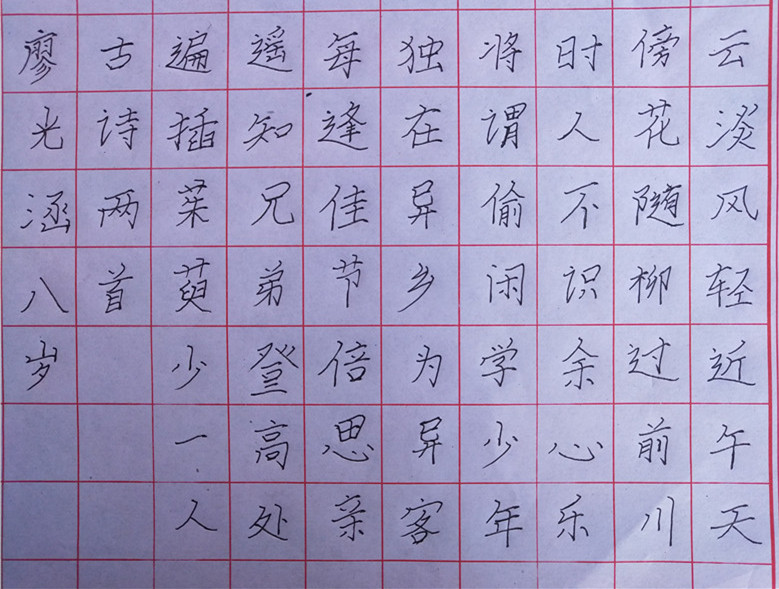 云淡风轻近午天
傍花随柳过前川
时人不识余心乐
将谓偷闲学少年
独在异乡为异客
每逢佳节倍思亲
遥知兄弟登高处
遍插茱萸少一人
古诗两首
廖光涵八岁